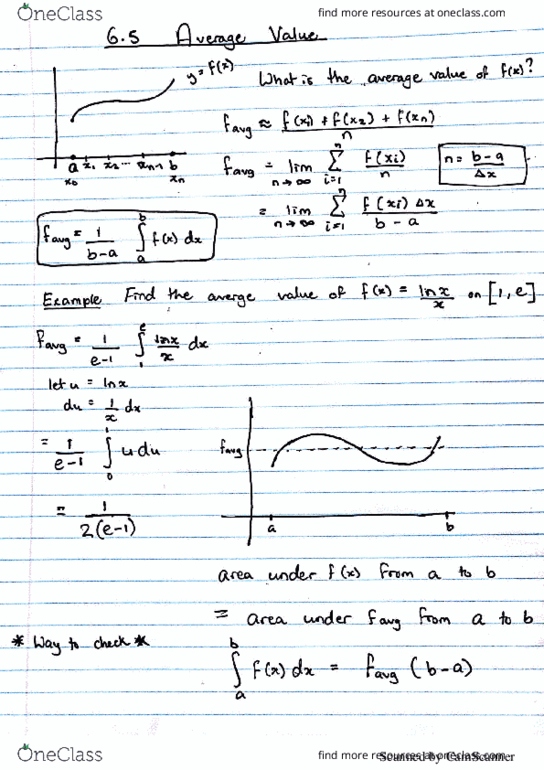 OneClass find more resources at oneclass.com
6.5 Average Value
y = f(x)
What is the average value of f(x)?
favg ≈ f(x1) + f(x2) + f(xn) / n
a x1 x2 ... xn-1 b
x0 xn
favg = lim n→∞ Σ i=1 n f(xi) / n
n = b-a / Δx
= lim n→∞ Σ i=1 n f(xi) Δx / b-a
favg = 1/b-a ∫ a b f(x) dx
Example Find the averge value of f(x) = lnx/x on [1,e]
favg = 1/e-1 ∫ 1 e lnx/x dx
let u = lnx
du = 1/x dx
= 1/e-1 ∫ 0 1 u du
favg
= 1/2(e-1)
a b
area under f(x) from a to b
= area under favg from a to b
* Way to check *
∫ a b f(x) dx = favg (b-a)
OneClass find more resources at oneclass.com
Scanned by CamScanner